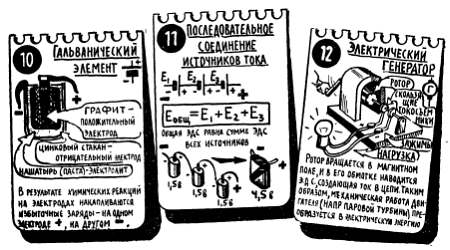 10
ГАЛЬВАНИЧЕСКИЙ
ЭЛЕМЕНТ
ГРАФИТ-
ПОЛОЖИТЕЛЬНЫЙ
ЭЛЕКТРОД
ЦИНКОВЫЙ СТАКАН-
ОТРИЦАТЕЛЬНЫЙ ЭЛЕКТРОД
НАШАТЫРЬ (ПАСТА)-ЭЛЕКТРОЛИТ
В РЕЗУЛЬТАТЕ ХИМИЧЕСКИХ РЕАКЦИЙ
НА ЭЛЕКТРОДАХ НАКАПЛИВАЮТСЯ
ИЗБЫТОЧНЫЕ ЗАРЯДЫ-НА ОДНОМ
ЭЛЕКТРОДЕ +, НА ДРУГОМ -
11
ПОСЛЕДОВАТЕЛЬНОЕ
СОЕДИНЕНИЕ
ИСТОЧНИКОВ ТОКА
E1 E2 E3
Eобщ=E1+E2+E3
ОБЩАЯ ЭДС РАВНА СУММЕ ЭДС
ВСЕХ ИСТОЧНИКОВ
1,5в 1,5в 1,5в 4,5в
12
ЭЛЕКТРИЧЕСКИЙ
ГЕНЕРАТОР
РОТОР
СКОЛЬЗЯ-
ЩИЕ
ТОКОСЪЕМ-
НИКИ
Г
ЗАЖИМЫ
НАГРУЗКА
РОТОР ВРАЩАЕТСЯ В МАГНИТНОМ
ПОЛЕ, И В ЕГО ОБМОТКЕ НАВОДИТСЯ
ЭДС, СОЗДАЮЩАЯ ТОК В ЦЕПИ. ТАКИМ
ОБРАЗОМ, МЕХАНИЧЕСКАЯ РАБОТА ДВИ-
ГАТЕЛЯ (НАПР ПАРОВОЙ ТУРБИНЫ) ПРЕ-
ОБРАЗУЕТСЯ В ЭЛЕКТРИЧЕСКУЮ ЭНЕРГИЮ